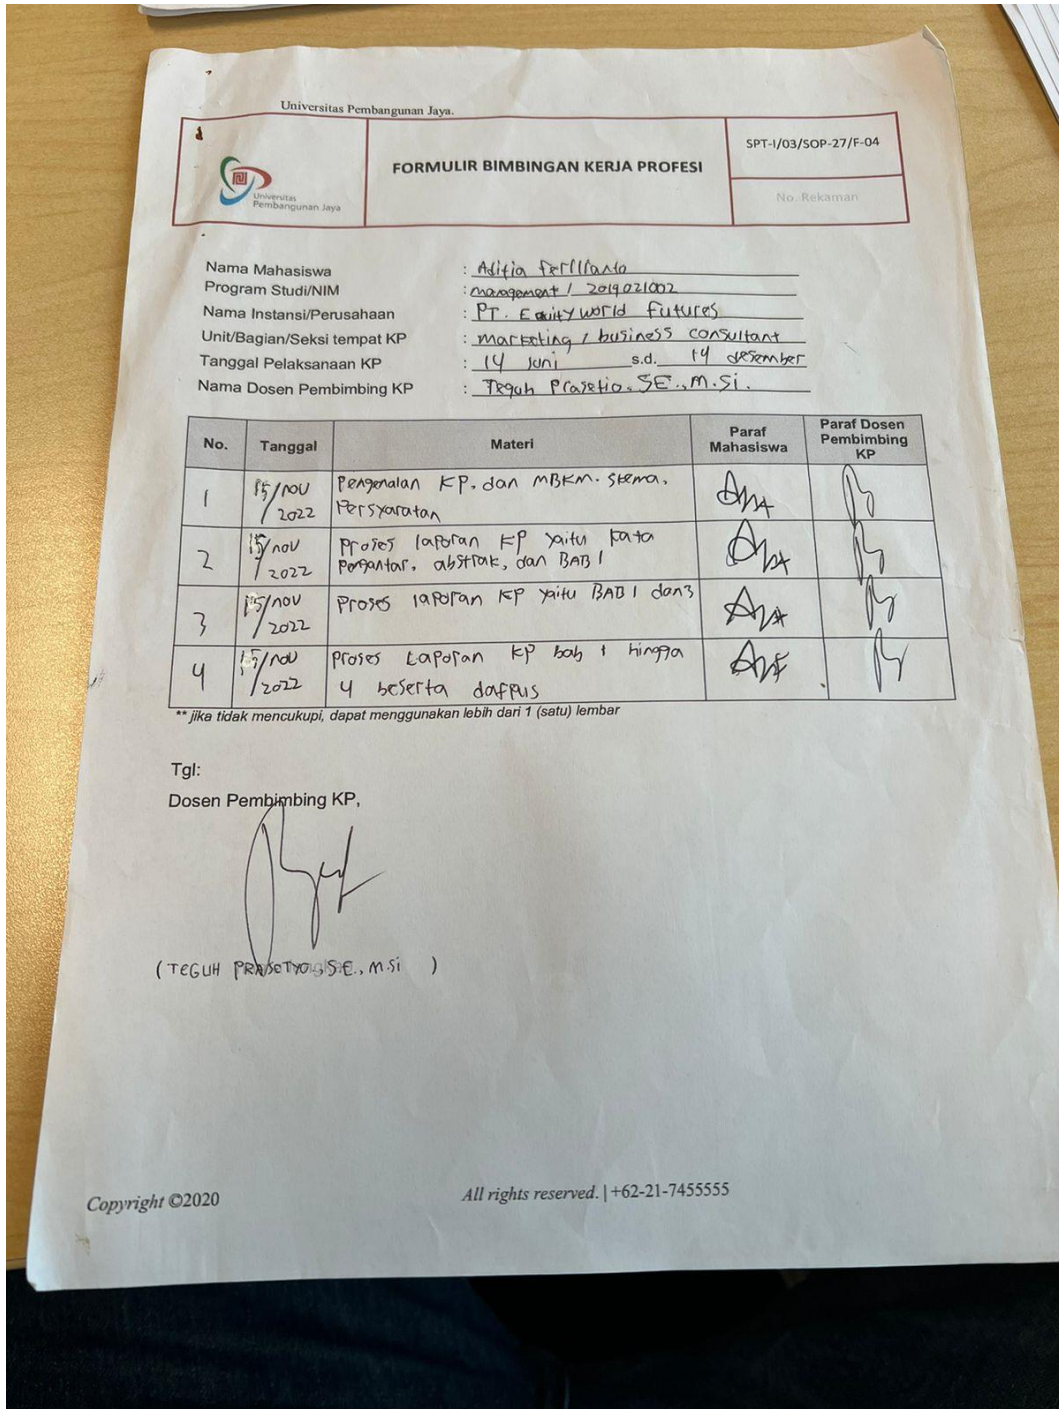 Universitas Pembangunan Jaya.
Universitas
Pembangunan Jaya
FORMULIR BIMBINGAN KERJA PROFESI
SPT-I/03/SOP-27/F-04
No. Rekaman
Nama Mahasiswa : Aditia
Program Studi/NIM : management / 2019021002
Nama Instansi/Perusahaan : PT. Equity world Futures
Unit/Bagian/Seksi tempat KP : marketing / business consultant
Tanggal Pelaksanaan KP : 14 Juni s.d. 14 desember
Nama Dosen Pembimbing KP : Teguh Prasetio. SE., M.Si.
No. Tanggal Materi Paraf Mahasiswa Paraf Dosen Pembimbing KP
1 15/nov/2022 Pengenalan KP, dan MBKM. skema, Persyaratan
2 15/nov/2022 Proses laporan KP yaitu kata Pengantar, abstrak, dan BAB 1
3 15/nov/2022 Proses laporan KP yaitu BAB 1 dan 3
4 15/nov/2022 Proses Laporan KP bab 1 hingga 4 beserta dafpus
** jika tidak mencukupi, dapat menggunakan lebih dari 1 (satu) lembar
Tgl:
Dosen Pembimbing KP,
(TEGUH PRASETYO., S.E., M.Si )
Copyright ©2020
All rights reserved. | +62-21-7455555